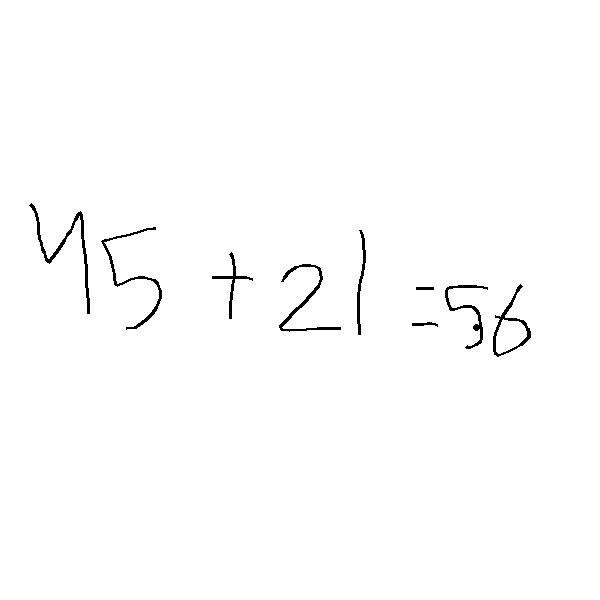 45 + 21 = 56